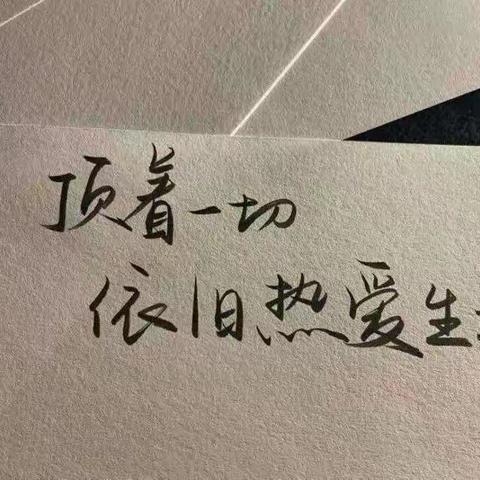 顶着一切
依旧热爱生